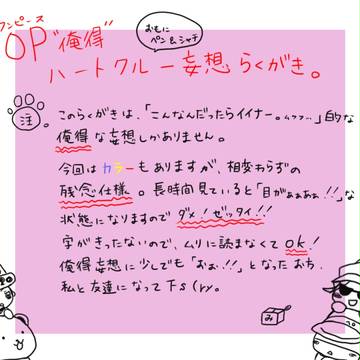 ワンピース
OP"俺得"
おもに
ペン&シャチ
ハートクルー妄想らくがき。
注
このらくがきは、「こんなんだったらイイナー。ムフフ…」的な
俺得な妄想しかありません。
今回はカラーもありますが、相変わらずの
残念仕様。長時間見ていると「目がぁぁぁぁ!!」な
状態になりますのでダメ!ゼッタイ!!
字がきったないので、ムリに読まなくてok!
俺得妄想に少しでも「おぉ、!!」となったおち、
私と友達になって下s(ry。